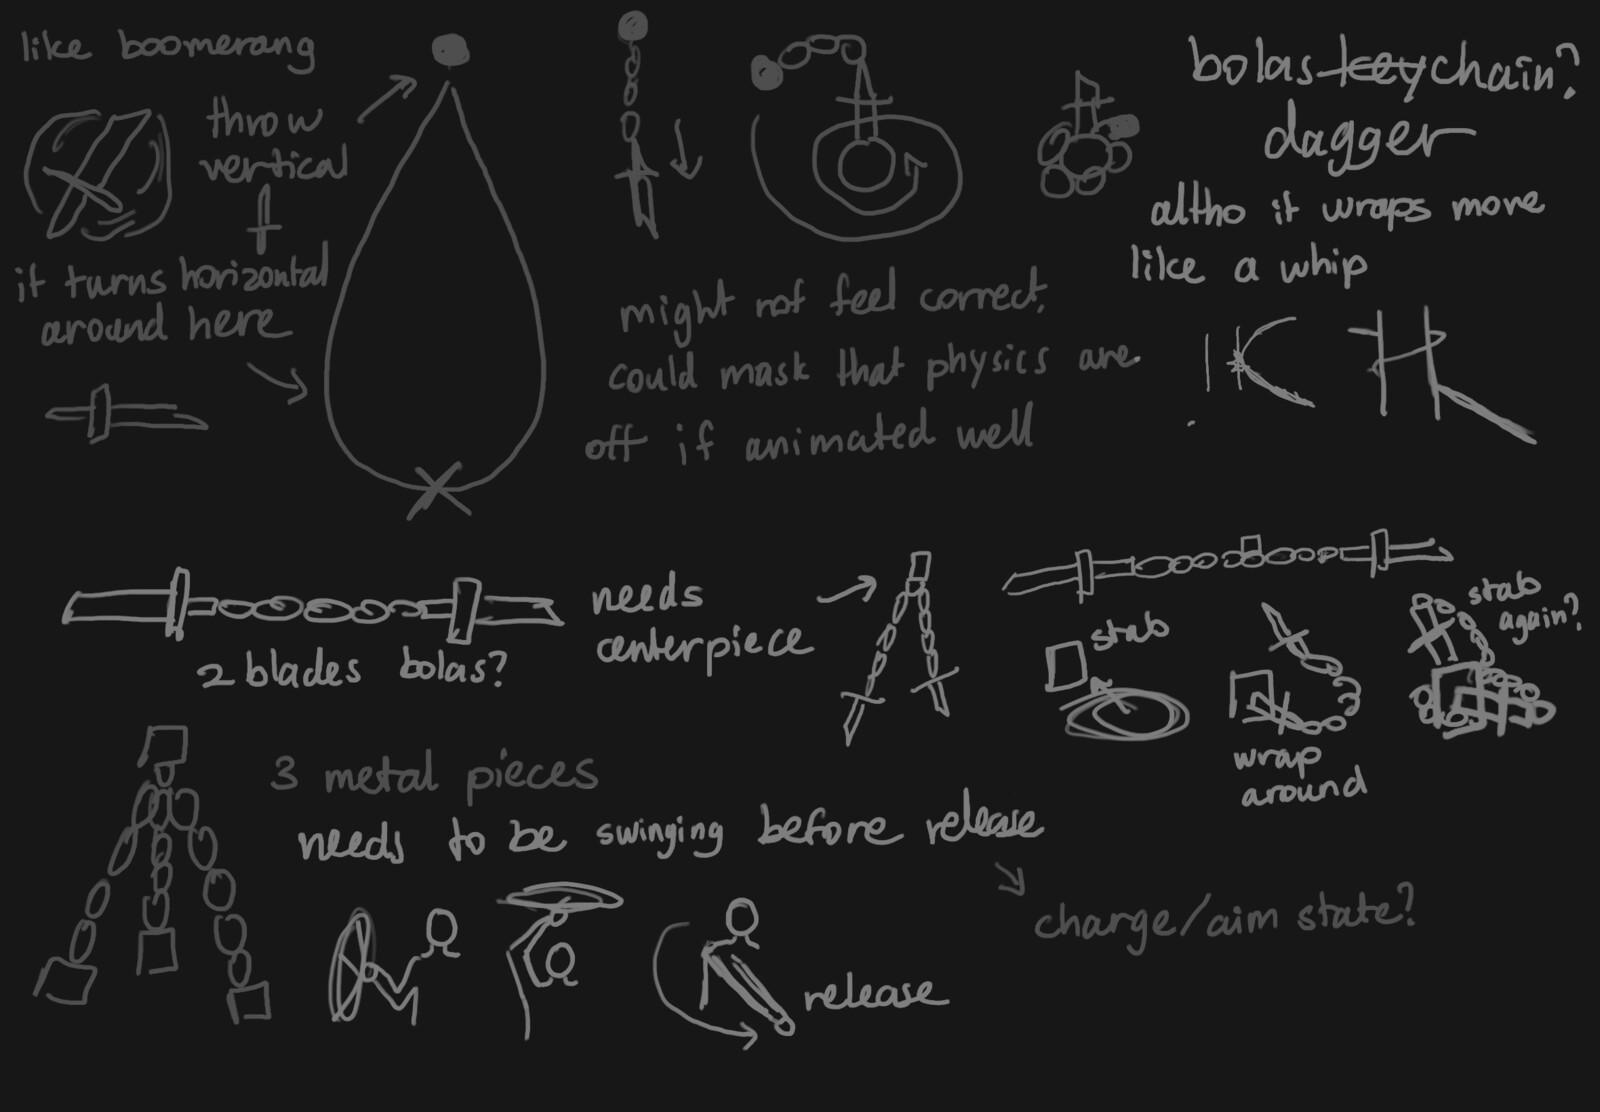 like boomerang
throw
vertical
it turns horizontal
around here
bolas keychain?
dagger
altho it wraps more
like a whip
might not feel correct,
could mask that physics are
off if animated well
2 blades bolas?
needs
centerpiece
stab
wrap
around
stab
again?
3 metal pieces
needs to be swinging before release
charge/aim state?
release